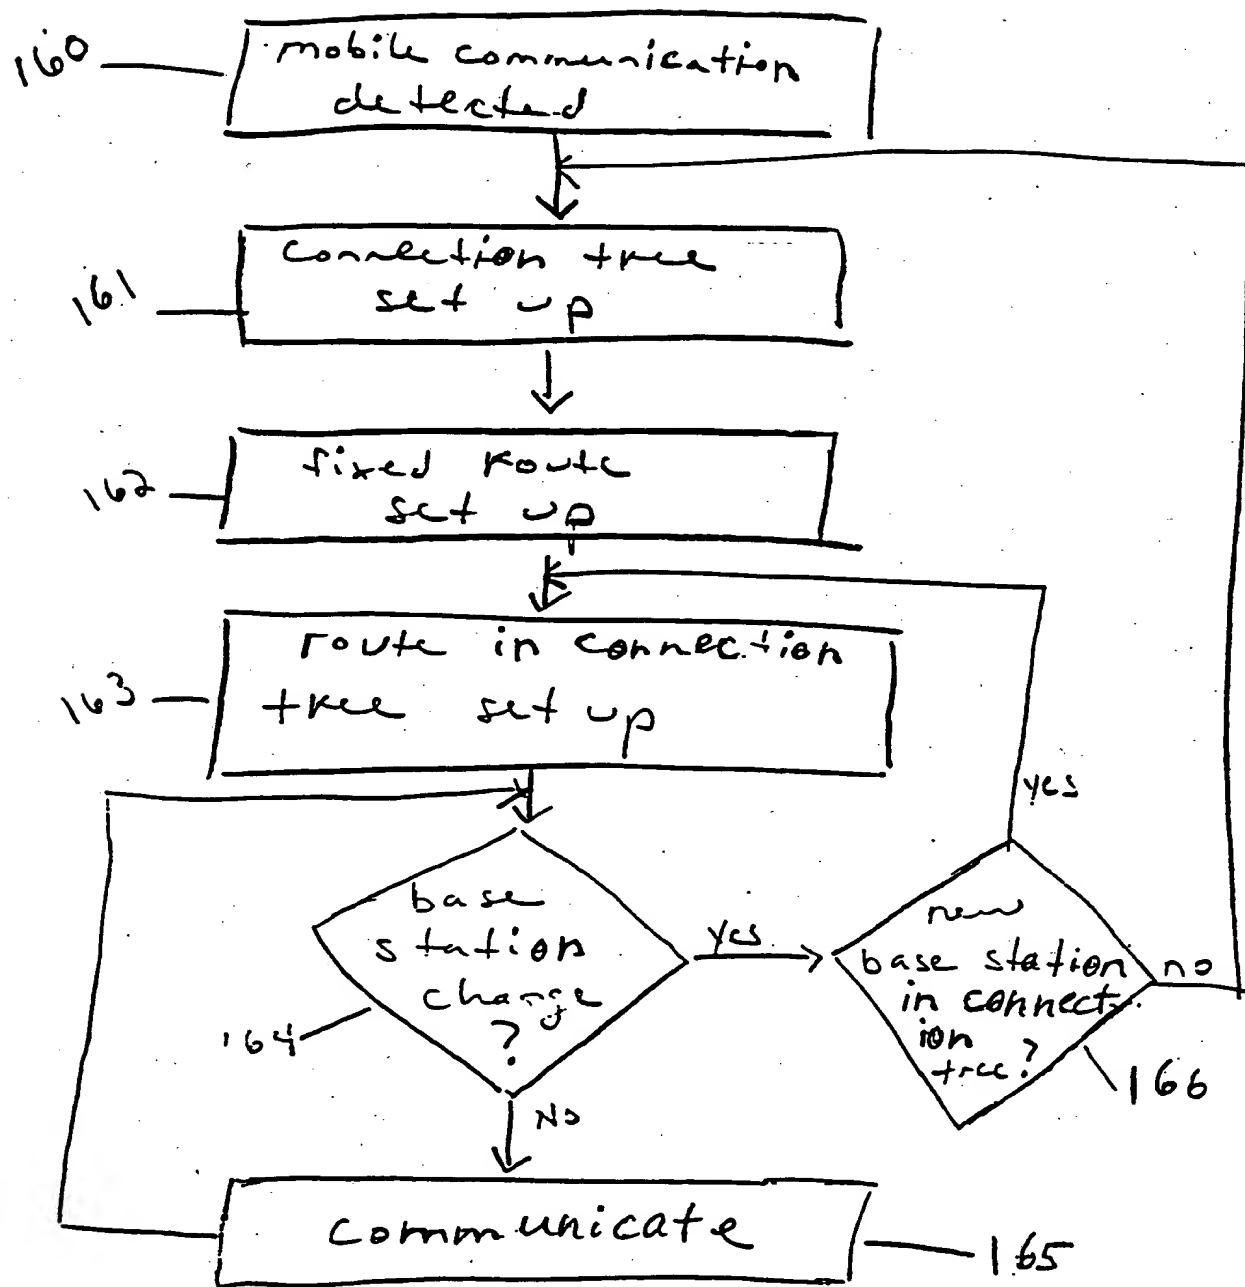 160
mobile communication
detected
161
connection tree
set up
162
fixed route
set up
163
route in connection
tree set up
yes
base
station
change
?
164
yes
new
base station
in connect-
ion
tree?
no
166
No
communicate
165